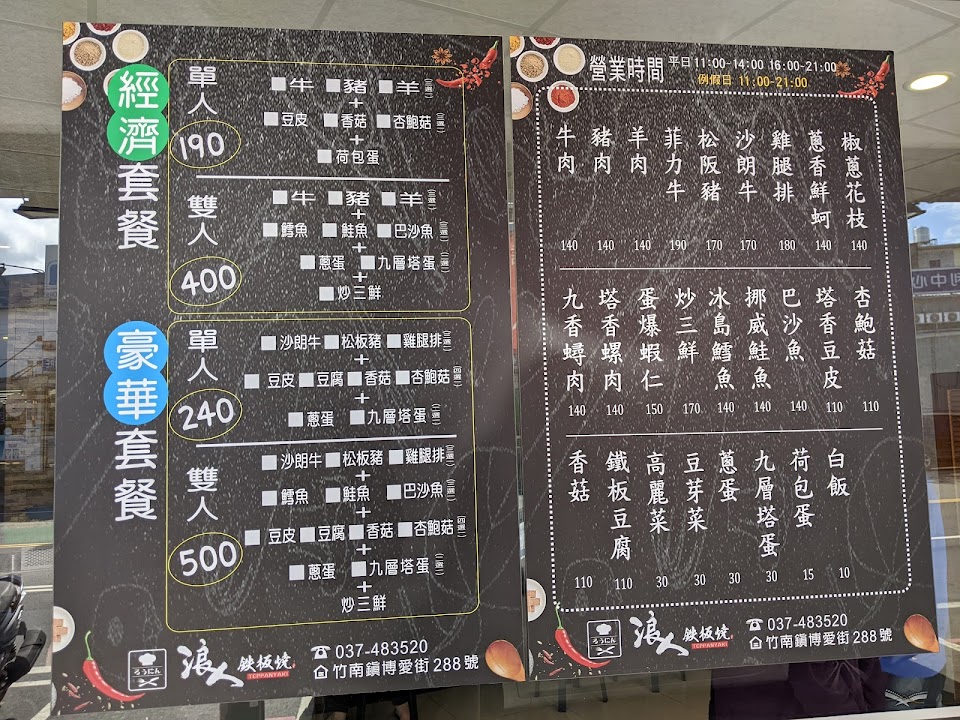 經濟套餐
單人
190
■牛 ■豬 ■羊(三選一)
+
■豆皮 ■香菇 ■杏鮑菇(三選一)
+
■荷包蛋
雙人
400
■牛 ■豬 ■羊(三選一)
+
■鱈魚 ■鮭魚 ■巴沙魚(三選一)
+
■蔥蛋 ■九層塔蛋(二選一)
+
■炒三鮮
豪華套餐
單人
240
■沙朗牛 ■松板豬 ■雞腿排(三選一)
+
■豆皮 ■豆腐 ■香菇 ■杏鮑菇(四選二)
+
■蔥蛋 ■九層塔蛋(二選一)
雙人
500
■沙朗牛 ■松板豬 ■雞腿排(三選一)
+
■鱈魚 ■鮭魚 ■巴沙魚(三選一)
+
■豆皮 ■豆腐 ■香菇 ■杏鮑菇
+
■蔥蛋 ■九層塔蛋(二選一)
+
炒三鮮
ろうにん
浪人 鉄板燒
TEPPANYAKI
037-483520
竹南鎮博愛街288號
營業時間 平日 11:00-14:00 16:00-21:00
例假日 11:00-21:00
牛肉 140
豬肉 140
羊肉 140
菲力牛 190
松阪豬 170
沙朗牛 170
雞腿排 180
蔥香鮮蚵 140
椒蔥花枝 140
九香蟳肉 140
塔香螺肉 140
蛋爆蝦仁 150
炒三鮮 170
冰島鱈魚 140
挪威鮭魚 140
巴沙魚 140
塔香豆皮 110
杏鮑菇 110
香菇 110
鐵板豆腐 110
高麗菜 30
豆芽菜 30
蔥蛋 30
九層塔蛋 30
荷包蛋 15
白飯 10
ろうにん
浪人 鉄板燒
TEPPANYAKI
037-483520
竹南鎮博愛街288號